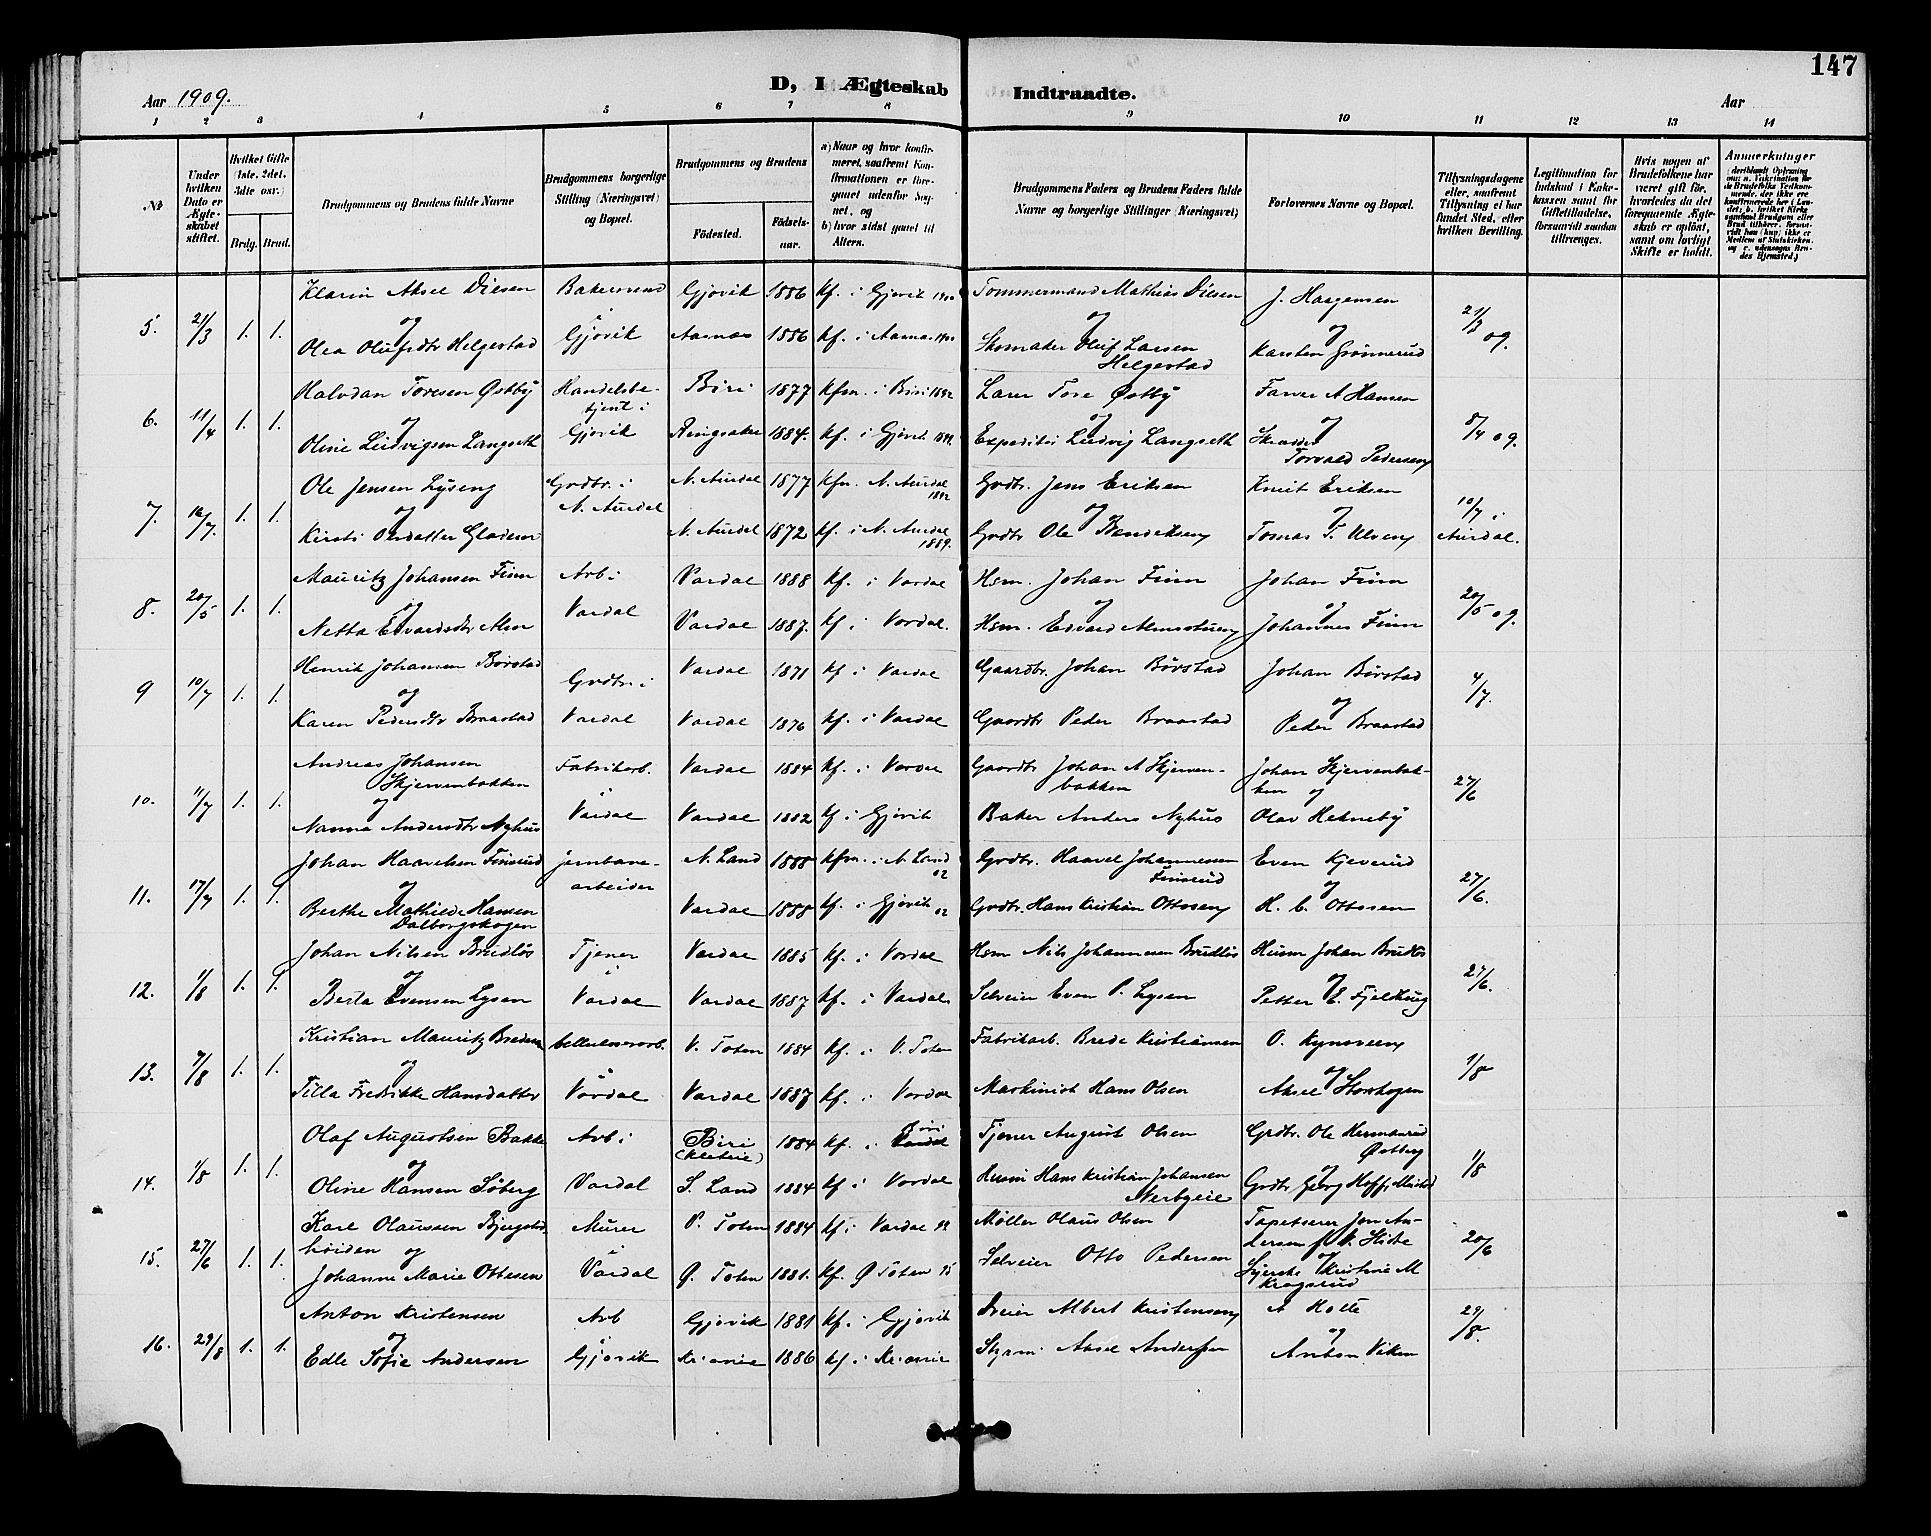 147
D, I Ægteskab Indtraadte.
Aar 1909.
Aar
1 2 3 4 5 6 7 8 9 10 11 12 13 14
No
Under hvilken Dato er Ægteskabet stiftet.
Hvilket Gifte (1ste, 2det, 3die osv.)
Brdg. Brud.
Brudgommens og Brudens fulde Navne
Brudgommens borgerlige Stilling (Næringsvei) og Bopæl.
Brudgommens og Brudens
Fødested.
Fødselsaar.
a) Naar og hvor konfirmeret, saafremt Konfirmationen er foregaaet udenfor Sognet, og
b) hvor sidst gaaet til Alters.
Brudgommens Faders og Brudens Faders fulde Navne og borgerlige Stillinger (Næringsvei)
Forlovernes Navne og Bopæl.
Tillysningsdagene eller, saafremt Tillysning ei har fundet Sted, efter hvilken Bevilling.
Legitimation for Indskud i Enkekassen samt for Giftetilladelse, forsaavidt saadan tiltrænges.
Hvis nogen af Brudefolkene har været gift før, hvorledes da det foregaaende Ægteskab er opløst, samt om lovligt Skifte er holdt.
Anmerkninger
5. 21/3 1. 1.
Aksel Olsen
Gjøvik 1886 kf. i Gjøvik
Tømmermand Mathias Olsen
J. Haagensen
21/3 09.
og
Olea Olufsdtr Helgestad
Gjøvik
Aasnes 1886 kf. i Aasnæs
Skomaker Oluf Larsen Helgestad
og
Karsten Grønnerud
6. 11/4 1. 1.
Halvdan Toresen Østby
Handelsbetjent i Gjøvik
Biri 1877 kfm. i Biri 1892
Lærer Tore Østby
Farver A Hansen
8/4 09.
og
Oline Ludvigsen Langseth
Ringsaker 1884. kf. i Gjøvik
Ludvig Langseth
og
Torvald Pedersen
7. 1. 1.
Ole Jensen Lyseng
Grdbr. i N. Aurdal
N. Aurdal 1877 kfm. N. Aurdal 1892
Grdbr. Jens Eriksen
Knut Eriksen
10/7 i Aurdal.
og
Kirsti
N. Aurdal 1872 kf. i N. Aurdal 1889.
Grdbr Ole Bendiksen
og
Tomas T. Ulven
8. 20/5 1. 1.
Mauritz Johansen Finn
Arb i Vardal
Vardal 1888 kf. i Vardal
Hsm. Johan Finn
Johan Finn
20/5 09.
og
Netta Edvardsdtr Alm
Vardal 1887. kf i Vardal.
Hsm. Edvard Almsstuen
og
Johannes Finn
9 10/7 1. 1.
Henrik Johansen Børstad
Grdbr i Vardal
Vardal 1871 kf i Vardal
Gaardbr. Johan Børstad
Johan Børstad
4/7.
og
Karen Pedersdtr Braastad
Vardal 1876 kf. i Vardal
Gaardbr Peder Braastad
og
Peder Braastad
10. 11/7 1. 1.
Andreas Johansen Skjervenbakken
Fabrikarb. i Vardal
Vardal 1884 kf. i Vardal
Gaardbr Johan A Skjervenbakken
Johan Skjervenbakken og
27/6
og
Nanna Andersdtr Nyhus
Vardal 1882 kf i Gjøvik
Baker Anders Nyhus
Olav Helneby
11. 17/7 1. 1.
Johan Haavelsen Finsrud
jernbanearbeider
N. Land 1888 kfm. i N. Land 02
Grdbr. Haavel Johannessen Finsrud
Even Kjeverud
27/6.
og
Berthe Mathilde Hansen Dalborgskogen
Vardal 1888 kf. i Gjøvik 02
Grdbr. Hans Kristian Ottosen
og
H. C. Ottosen
12. 1/8 1. 1.
Johan Nilsen Brudløs
Tjener i Vardal
Vardal 1885 kf. i Vardal
Hsm Nils Johannesen Brudløs
Husm Johan Brudløs
27/6.
og
Berta Evensen Lysen
Vardal 1887 kf. i Vardal.
Selveier Even P. Lysen
og
Petter E. Fjeldhaug
13. 7/8 1. 1.
Kristian Mauritz Bredesen
Cellulosearb. i Vardal
V. Toten 1884 kf. i V. Toten
Fabrikarb. Brede Kristiansen
O. Kynsveen
1/8
og
Tilla Fredrikke Hansdatter
Vardal 1887 kf. i Vardal
Maskinist Hans Olsen
og
Aksel Storhogen
14. 1/8 1. 1.
Olaf Augustsen Bakke
Arb i Vardal
Biri 1884 kf. i Biri Vardal
Tjener August Olsen
Grdbr. Ole Hermanrud Østberg
1/8
og
Oline Hansen Søberg
S. Land 1884 kf i Vardal
Husm Hans Kristian Johansen
og
Grdbr Georg Hoff, Mustad
15. 27/6 1. 1.
Karl Olaussen Bjergstadhøiden og
Murer i Vardal
V. Toten 1884 kf i Vardal
Møller Olaus Olsen
Tapetserer Jon Andersen
20/6
Johanne Marie Ottesen
Ø. Toten 1881. kf. Ø Toten
Selveier Otto Pedersen
og
Syerske Kristine M Kragsrud
16. 29/8 1. 1.
Anton Kristensen
Arb i Gjøvik
Gjøvik 1881 kf. i Gjøvik
Dreier Albert Kristensen
A Holte
29/8.
og
Edle Sofie Andersen
Kr:ania 1886 kf i Kr:ania
Styrm: Aksel Andersen
og
Anton Viken